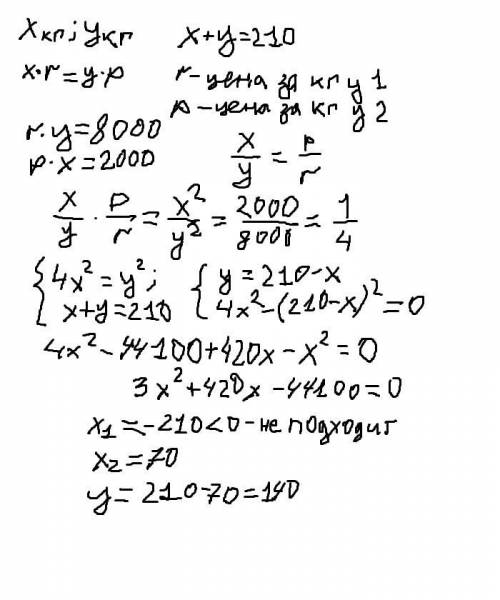 x кг; y кг    x+y=210
x·r=y·p    r-цена за кг у 1
p-цена за кг у 2
r·y=8000
p·x=2000    x/y = p/r
x/y · p/r = x²/y² = 2000/8000 = 1/4
{4x²=y²;    {y=210-x
{x+y=210    {4x²-(210-x)²=0
4x²-44100+420x-x²=0
3x²+420x-44100=0
x₁=-210<0-не подходит
x₂=70
y=210-70=140